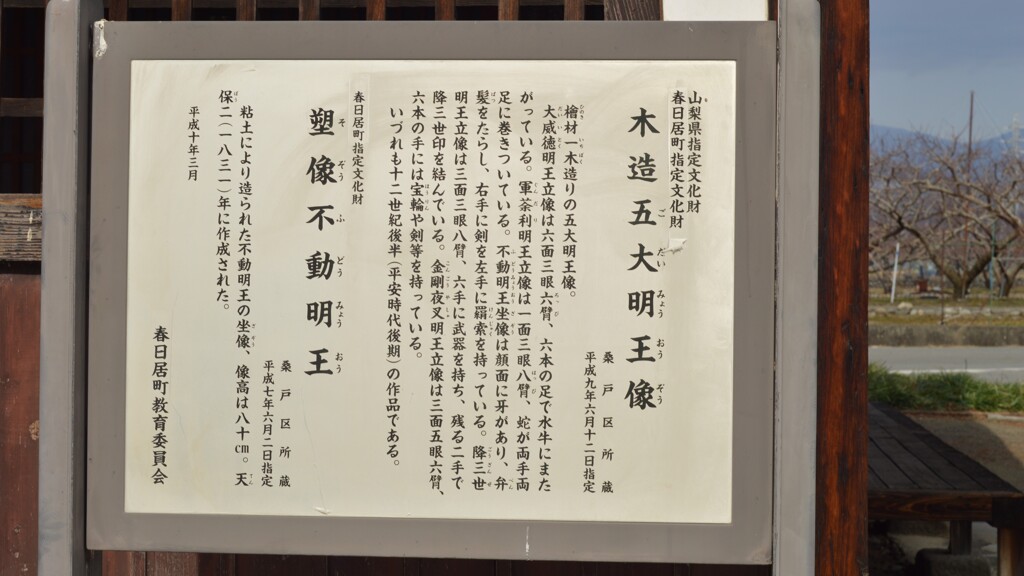 山梨県指定文化財
春日居町指定文化財
木造五大明王像
桑戸区所蔵
平成九年六月十二日指定
檜材一木造りの五大明王像。
大威徳明王立像は六面三眼六臂、六本の足で水牛にまた
がっている。軍荼利明王立像は一面三眼八臂、蛇が両手両
足に巻きついている。不動明王坐像は顔面に牙があり、弁
髪をたらし、右手に剣を左手に羂索を持っている。降三世
明王立像は三面三眼八臂、六手に武器を持ち、残る二手で
降三世印を結んでいる。金剛夜叉明王立像は三面五眼六臂、
六本の手には宝輪や剣等を持っている。
いづれも十二世紀後半(平安時代後期)の作品である。
春日居町指定文化財
塑像不動明王
桑戸区所蔵
平成七年六月二日指定
粘土により造られた不動明王の坐像、像高は八十㎝。天
保二(一八三一)年に作成された。
平成十年三月
春日居町教育委員会